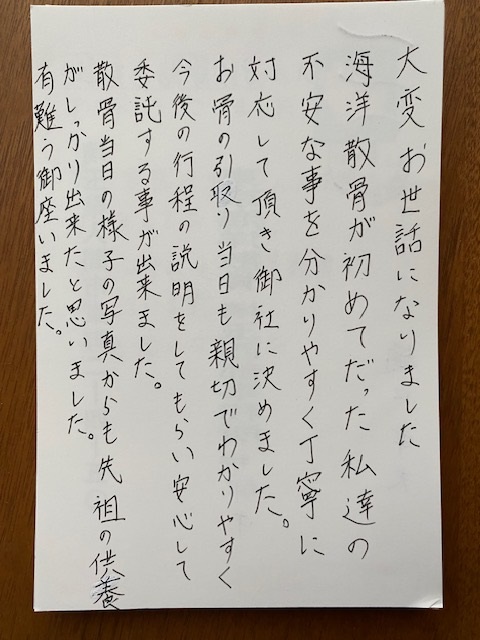 大変お世話になりました
海洋散骨が初めてだった私達の
不安な事を分かりやすく丁寧に
対応して頂き御社に決めました。
お骨の引取り当日も親切でわかりやすく
今後の行程の説明をしてもらい安心して
委託する事が出来ました。
散骨当日の様子の写真からも先祖の供養
がしっかり出来たと思いました。
有難う御座いました。